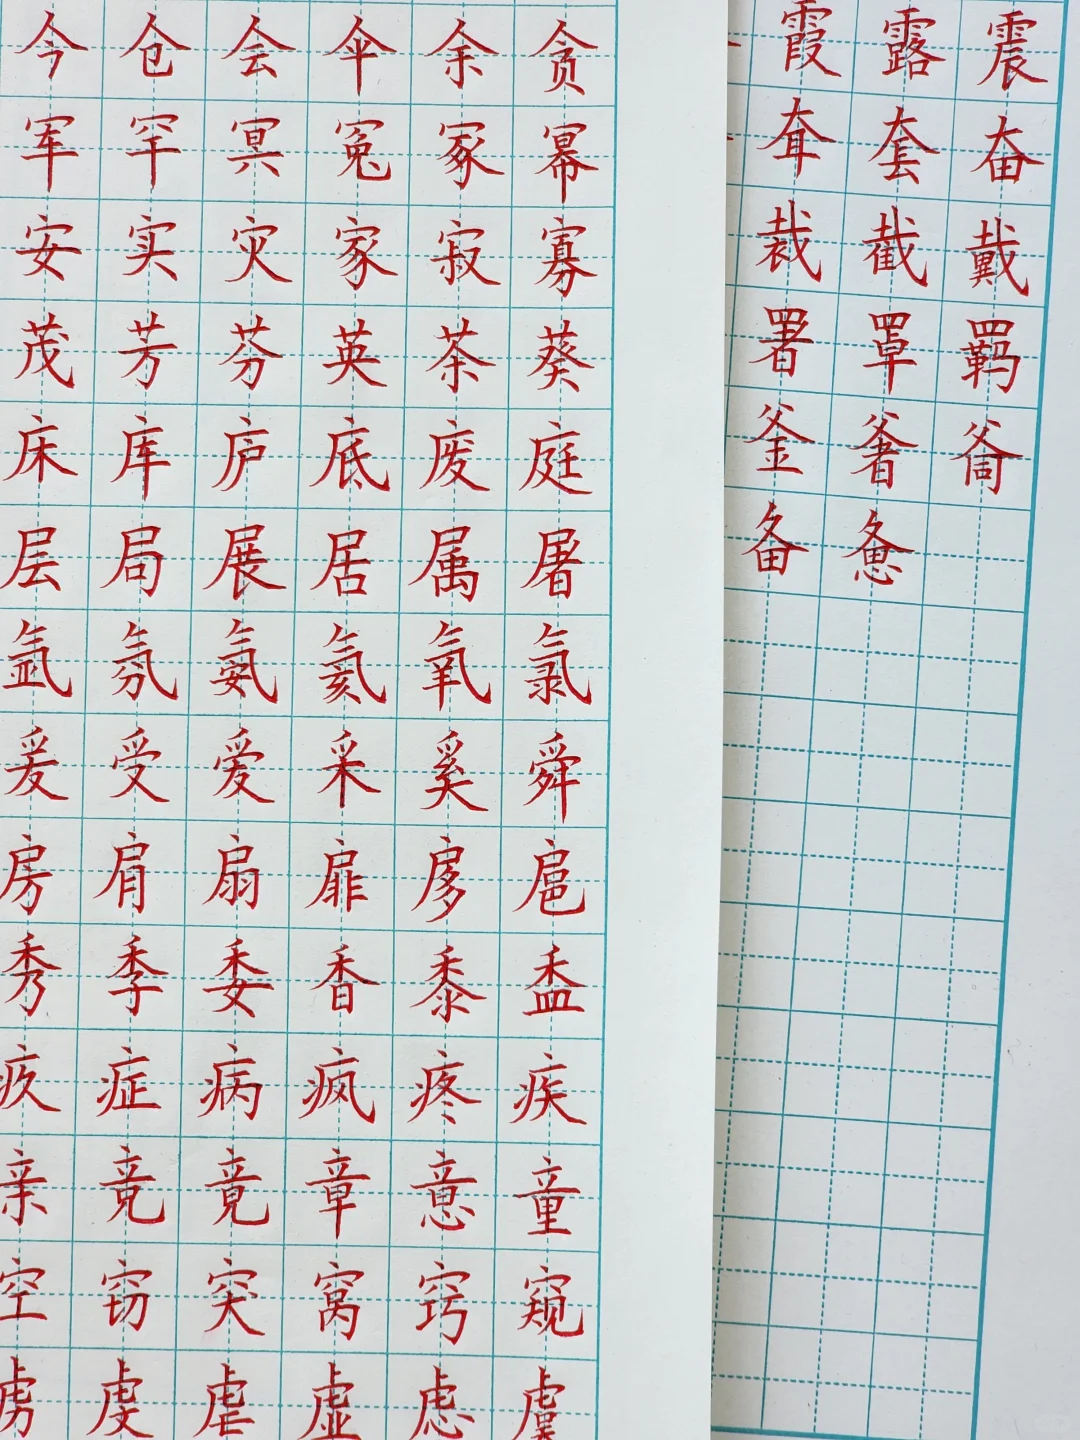 今仓会伞余贪
军罕冥冤冢幂
安实灾家寂寡
茂芳芬英茶葵
床库庐底废庭
层局展居属屠
氙氛氨氦氧氯
爰受爱采奚舜
房肩扇扉扅扈
秀季委香黍盉
疚症病疯疼疾
亲竟竟章意童
空窃突窝窍窥
虏虔虐虚虑虞
霞露震
耷套奋
裁截戴
署罩羁
釜
备惫